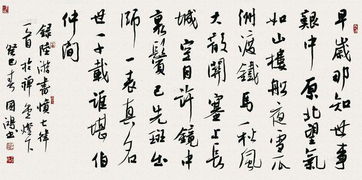 早歲那知世事
艱中原北望氣
如山樓船夜雪瓜
洲渡鐵馬秋風
大散關塞上長
城空自許鏡中
衰鬢已先斑出
師一表真名
世千載誰堪伯
仲間
錄陸游書憤七律
一首於燈下
癸巳春